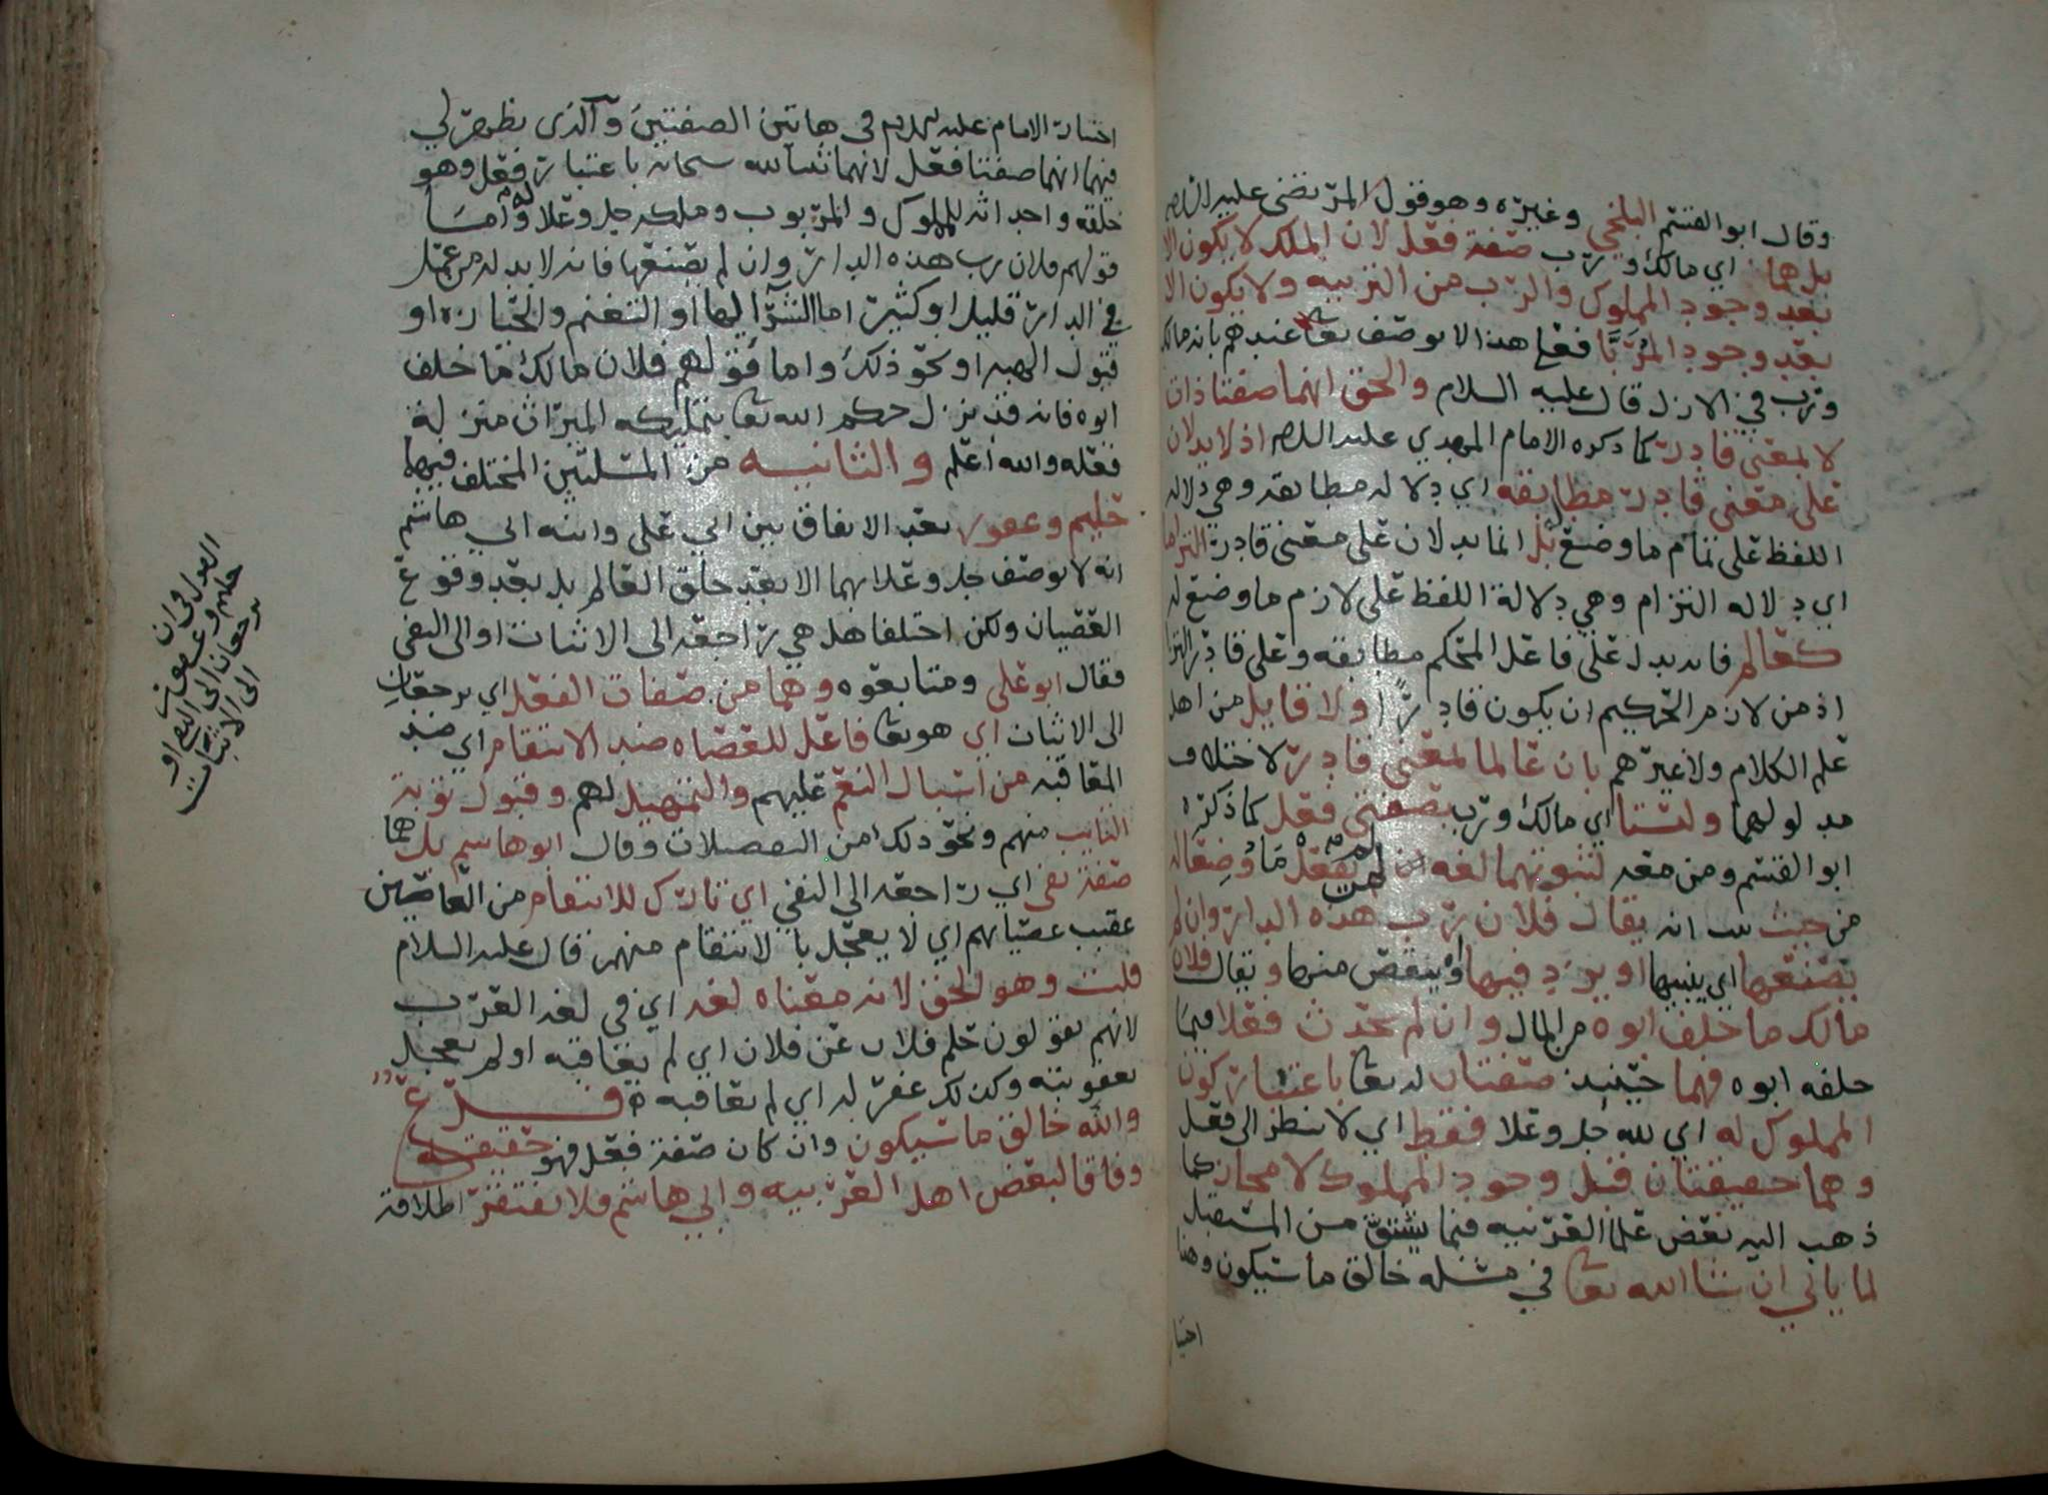 وقال ابو القسم البلخي وغيره وهو قول المرتضى عليه السلام
بل هما اي مالك ورب صفة فعل لان الملك لا يكون الا
بعد وجود المملوك والرب من التربيه ولا يكون الا
بعد وجود المربَّا فعلى هذا لا يوصف تعا عندهم بانه مالك
ورب في الازل قال عليه السلام والحق انهما صفتا ذات
لا بمعنى قادر كما ذكره الامام المهدي عليه السلام اذ لا يدلان
على معنى قادر مطابقه اي دلاله مطابقه وهي دلاله
اللفظ على تمام ما وضع بل انما يدلان على معنى قادر التزاما
اي دلاله التزام وهي دلالة اللفظ على لازم ما وضع له
كعالم فانه يدل على فاعل المحكم مطابقه وعلى قادر التزا
اذ من لازم الحكيم ان يكون قادرًا ولا قايل من اهل
علم الكلام ولا غيرهم بان عالما بمعنى قادر لاختلاف
مدلولهما وليستا اي مالك ورب بصفتي فعل كما ذكره
ابو القسم ومن معه لثبوتهما لغه لمن لم يفعل مَا وُضِعَا له
من حيث انه يقال فلان رب هذه الدار وان لم
يصنعها اي يبنيها او يزد فيها او ينقص منها ويقال فلان
مالك ما خلف ابوه من المال وان لم يحدث فعلا فيما
خلفه ابوه فهما حينيذ صفتان له تعا باعتبار كون
المملوك له اي لله جل وعلا فقط اي لا بنظر الى فعل
وهما حقيقتان قبل وجود المملوك لا مجاز كما
ذهب اليه بعض علما العربيه فيما يشتق من المستقبل
لما ياتي ان شا الله تعا في مسئله خالق ما سيكون وهذا
اختيار
اختيار الامام عليه السلام في هاتين الصفتين والذي يظهر لي
فيهما انهما صفتا فعل لانهما ثبتا لله سبحانه باعتبار فعله وهو
خلقه واحداثه للمملوك والمربوب وملكه جل وعلا وامَّا
قولهم فلان رب هذه الدار وان لم يصنعها فانه لا بد له من عمل
في الدار قليل او كثير اما الشرآ لها او التغنم والحيازه او
قبول الهبه او نحو ذلك واما قولهم فلان مالك ما خلف
ابوه فانه قد نزل حكم الله تعا بتمليكه الميراث منزلة
فعله والله اعلم والثانيه من المسلتين المختلف فيهما
حليم وغفور بعد الاتفاق بين ابي علي وابنه ابي هاشم
انه لا يوصف جل وعلا بهما الا بعد خلق العالم بل بعد وقوع
العصيان ولكن اختلفا هل هي راجعه الى الاثبات او الى النفي
فقال ابو علي ومتابعوه وهما من صفات الفعل اي يرجعان
الى الاثبات اي هو تعا فاعل للعصاه ضد الانتقام اي ضد
المعاقبه من اسبال النعم عليهم والتمهيل لهم وقبول توبة
التايب منهم ونحو ذلك من التفصلات وقال ابو هاشم بل هما
صفة نفي اي راجعه الى النفي اي تارك للانتقام من العاصين
عقيب عصيانهم اي لا يعجل بالانتقام منهم قال عليه السلام
قلت وهو الحق لانه معناه لغه اي في لغه العرب
لانهم يقولون حلم فلان عن فلان اي لم يعاقبه او لم يعجل
بعقوبته وكذلك غفر له اي لم يعاقبه ه فرع
والله خالق ما سيكون وان كان صفة فعل فهو حقيقه
وفاقا لبعض اهل العربيه وابي هاشم فلا يفتقر اطلاقه
القول في ان
حليم وغفور
يرجعان الى النفي او
الى الاثبات